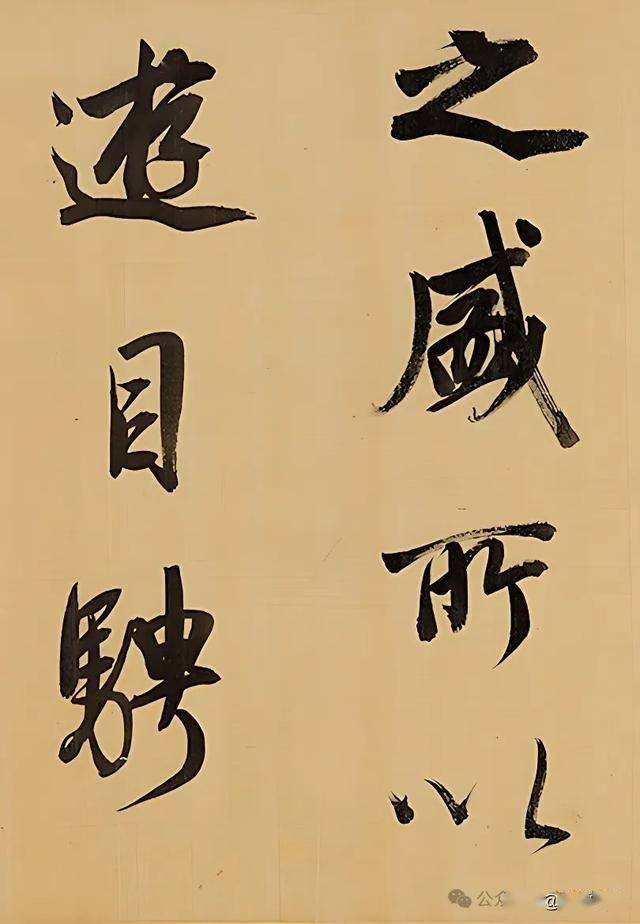 之盛所以
遊目騁
公众
@